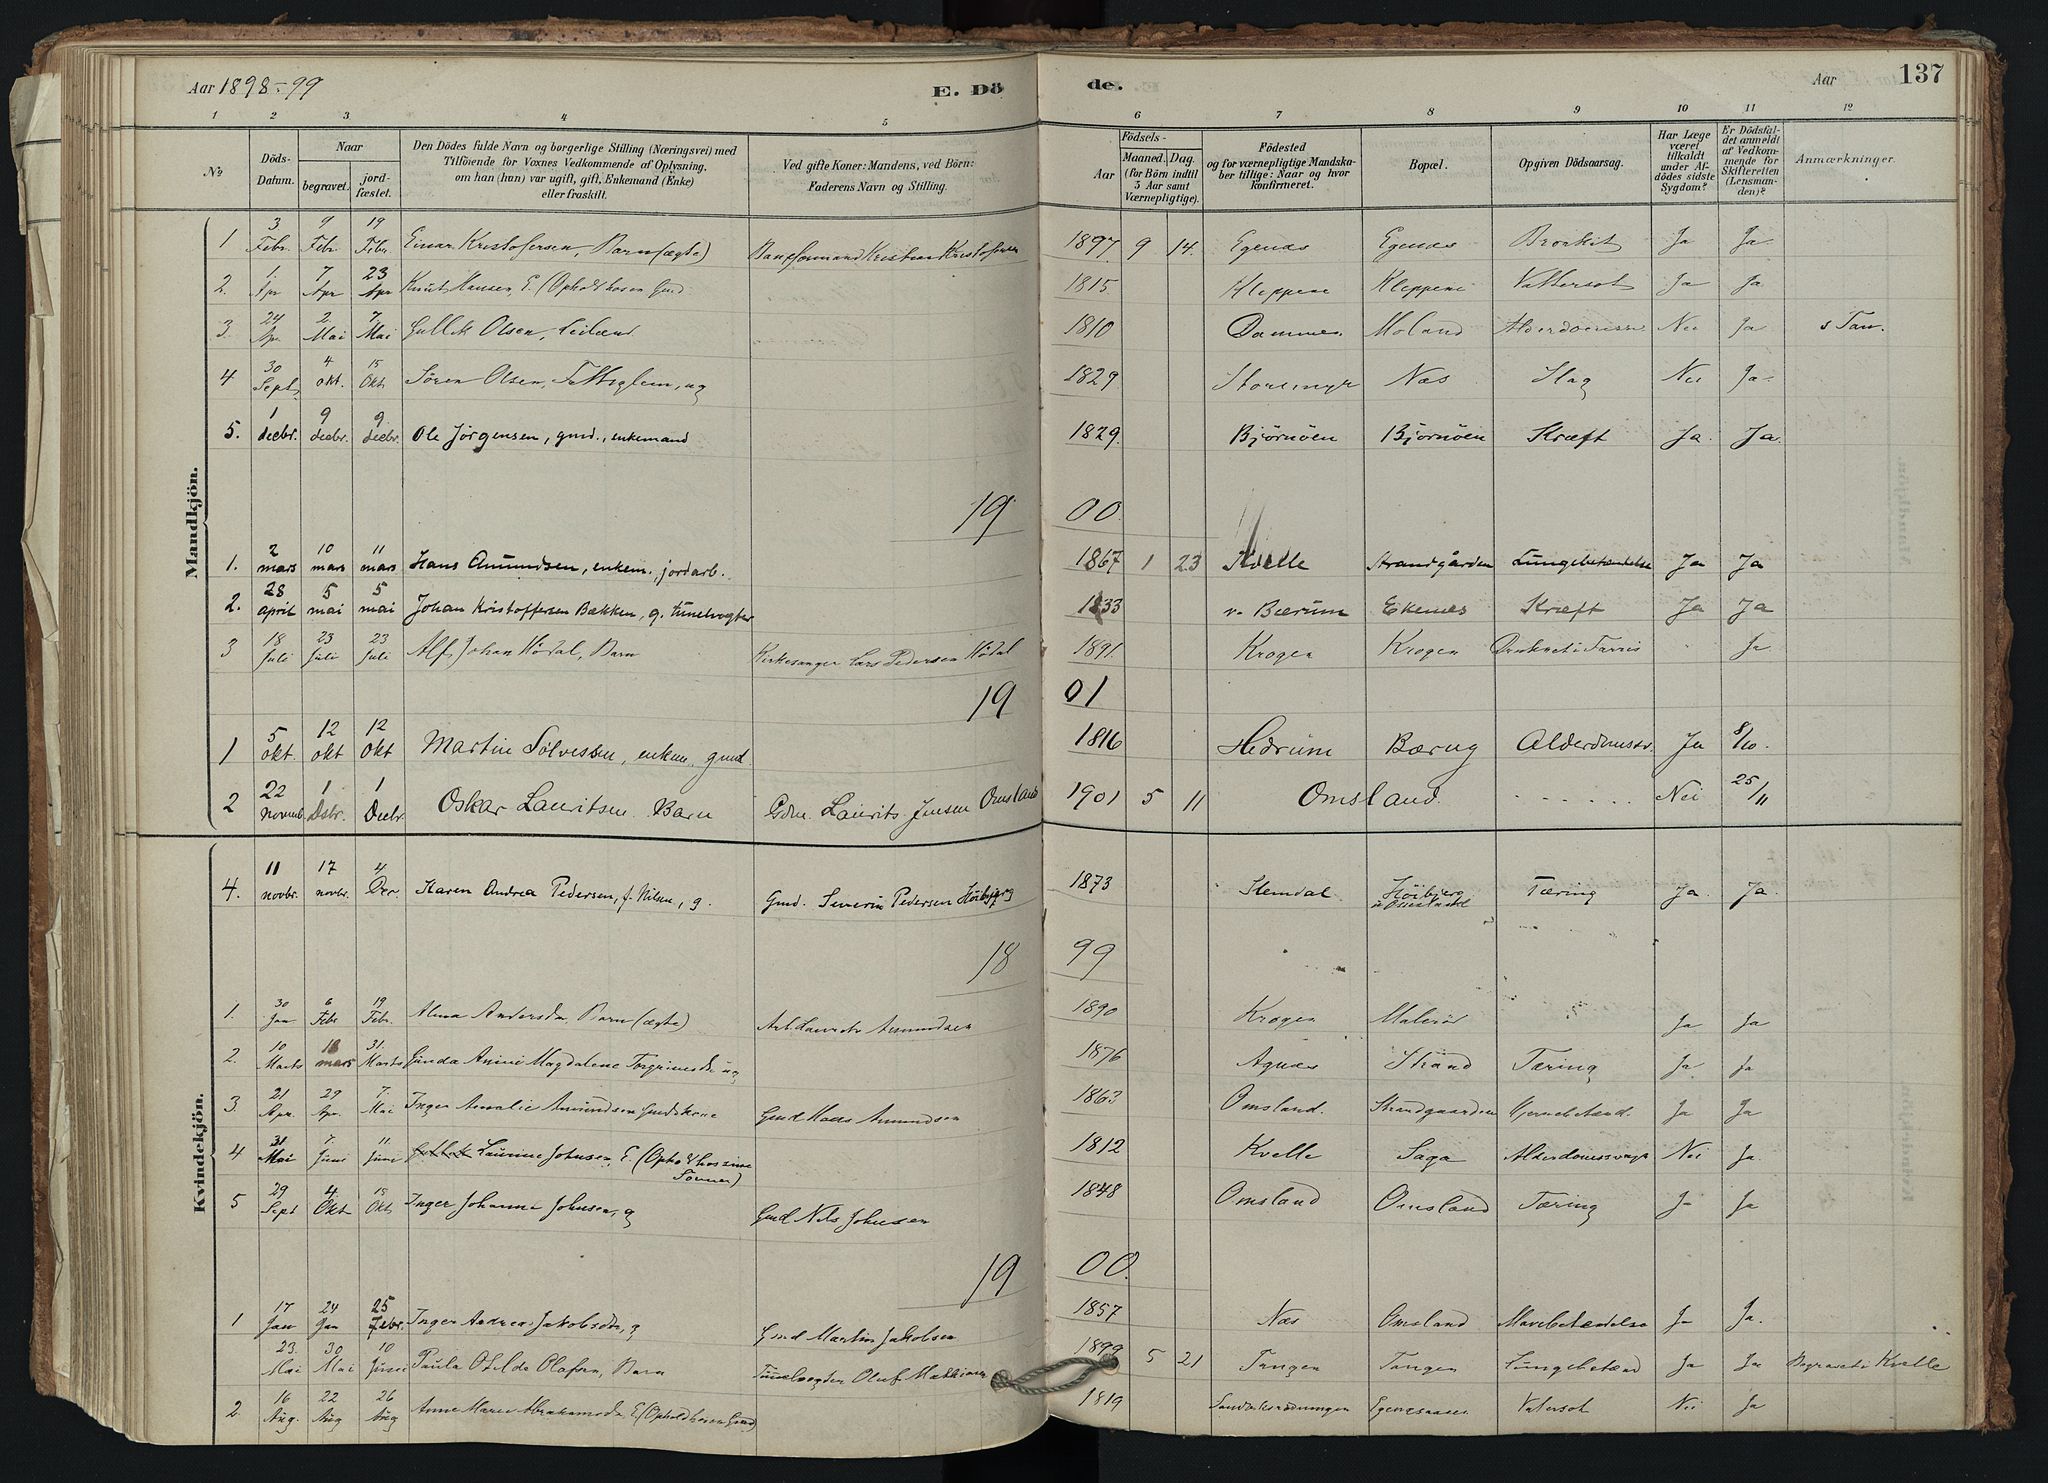 Aar 1898-99 E. Dö de. Aar 137
1 2 3 4 5 6 7 8 9 10 11 12
No Döds-Datum. Naar begravet. jord-fæstet. Den Dödes fulde Navn og borgerlige Stilling (Næringsvei) med Tilföiende for Voxnes Vedkommende af Oplysning, om han (hun) var ugift, gift, Enkemand (Enke) eller fraskilt. Ved gifte Koner: Mandens, ved Börn: Faderens Navn og Stilling. Födsels- Aar Maaned. Dag. (for Börn indtil 3 Aar samt Værnepligtige). Födested og for værnepligtige Mandskaber tillige: Naar og hvor konfirmeret. Bopæl. Opgiven Dödsaarsag. Har Læge været tilkaldt under Afdödes sidste Sygdom? Er Dödsfaldet anmeldt af Vedkommende for Skifteretten (Lensmanden)? Anmærkninger.
Mandkjön.
1 3 Febr. 9 Febr. 19 Febr. Einar Kristofersen, Barn (ægte) Kristian Kristofersen 1897 9 14. Egenæs Egenæs Bronkit Ja Ja
2. 1. Apr 7 Apr 23 Apr Knut Hansen, E. (Ophold hos en Gmd. 1815. Kleppene Kleppene Vattersot Ja Ja
3. 24 Ap. 2. Mai 7. Mai Gullik Olsen, 1810 Moland Nei Ja s Tan.
4 30 Sept. 4 okt. 15 Okt Sören Olsen, Fattiglem, ug 1829 Storemyr Næs Slag Nei Ja.
5. 1 decbr. 9 decbr. 9 decbr. Ole Jørgensen, gmd., enkemand 1829. Bjørnöen Bjørnöen Kræft Ja. Ja.
19 00.
1. 2 mars 10 mars 11 mars Hans Amundsen, enkem., jordarb. 1867 1 23 Kvelle Strandgården Lungebetændelse Ja Ja
2. 28 april 5 mai 5 mai Johan Kristoffersen Bækken, g. tunelvogter 1833 v. Bærum Ekenes Kræft Ja Ja
3 18 Juli 23 Juli 23 Juli Alf Johan Hødal, Barn Kirkesanger Lars Pedersen Hødal 1891. Krogen Krogen Druknet i Farris Ja
19 01
1 5 okt. 12 okt 12 Okt Martin Sølvessen, enkem. gmd 1816 Hedrum Bærug Alderdomssv. Ja 8/10.
2 22 novemb. 1 Debr. 1 Decbr. Oskar Lauritsen. Barn Gdm. Laurits Jensen Omsland 1901 5 11 Omsland. . . . . . . Nei 25/11
Kvindekjön.
4. 11 novbr. 17 novbr. 4 Der. Karen Andrea Pedersen, f. Nilsen, g. Gmd. Severin Pedersen Höibjerg 1873 Slemdal Höibjerg Tæring Ja. Ja.
18 99
1. 30 Jan 6 Febr 19 Febr. Alma Andersdr. Barn (ægte) Arb. Laurits Amundsen 1890 Krogen Ja Ja
2. 10 Marts 18 mars 31. Marts Gunda Anine Magdalene Torgrimsdr ug 1876 Agnæs Strand Tæring Ja Ja
3. 21 Apr. 29 Apr. 7. Mai Inger Amalie Amundsen Gmdskone Gmd Hans Amundsen 1863 Omsland. Strandgaarden Hjernebetænd. Ja Ja
4 31 Mai 7. Juni 11. Juni Laurine Johnsen, E. (Ophold hos sine Sønner) 1812 Kvelle Saga Alderdomssvagh Nei Ja.
5 29 Sept 4. Okt 15 Okt. Inger Johanne Johnsen, g Gmd Nils Johnsen 1848 Omsland Omsland Tæring Ja Ja
19 00.
1 17 Jan 24 Jan 25 Febr. Inger Andrea Jakobsdr, g Gmd Martin Jakobsen 1857 Næs Omsland Mavebetændelse Ja Ja.
23. Mai 30 Mai 10 Juni Paula Otilde Olafsen, Barn Tunelvogter Oluf Mathisen 1899 5 21 Tangen Tangen Lungebetænd Ja Ja Begravet i Kvelle
2. 16 Aug. 22 Aug 26 Aug Anne Marie Abrahamsdr. E. (Ophold hos en Gmd) 1819 Vatersot Nei Ja